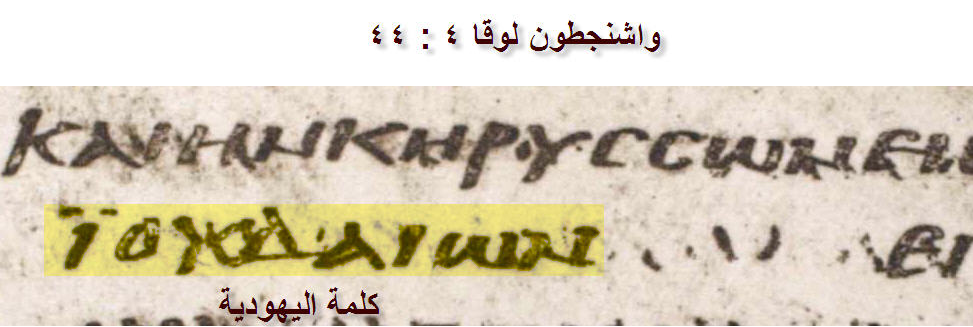 واشنجطون لوقا ٤ : ٤٤
ΚΑΙΗΝΚΗΡΥϹϹШΝΕΝ
ΪΟΥΔΑΙШΝ ΕΙ
كلمة اليهودية